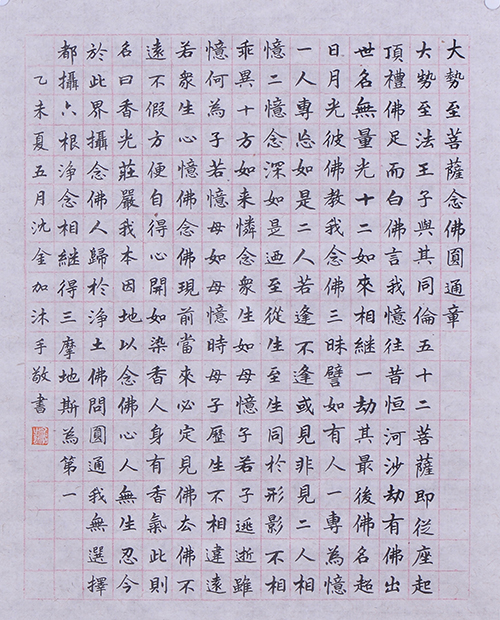 大勢至菩薩念佛圓通章
大勢至法王子與其同倫五十二菩薩即從座起
頂禮佛足而白佛言我憶往昔恒河沙劫有佛出
世名無量光十二如來相繼一劫其最後佛名超
日月光彼佛教我念佛三昧譬如有人一專為憶
一人專忘如是二人若逢不逢或見非見二人相
憶二憶念深如是迺至從生至生同於形影不相
乖異十方如来憐念衆生如母憶子若子逃逝雖
憶何為子若憶母如母憶時母子歷生不相違遠
若衆生心憶佛念佛現前當來必定見佛去佛不
遠不假方便自得心開如染香人身有香氣此則
名曰香光莊嚴我本因地以念佛心人無生忍今
於此界攝念佛人歸於淨土佛問圓通我無選擇
都攝六根淨念相繼得三摩地斯為第一
乙未夏五月沈金加沐手敬書